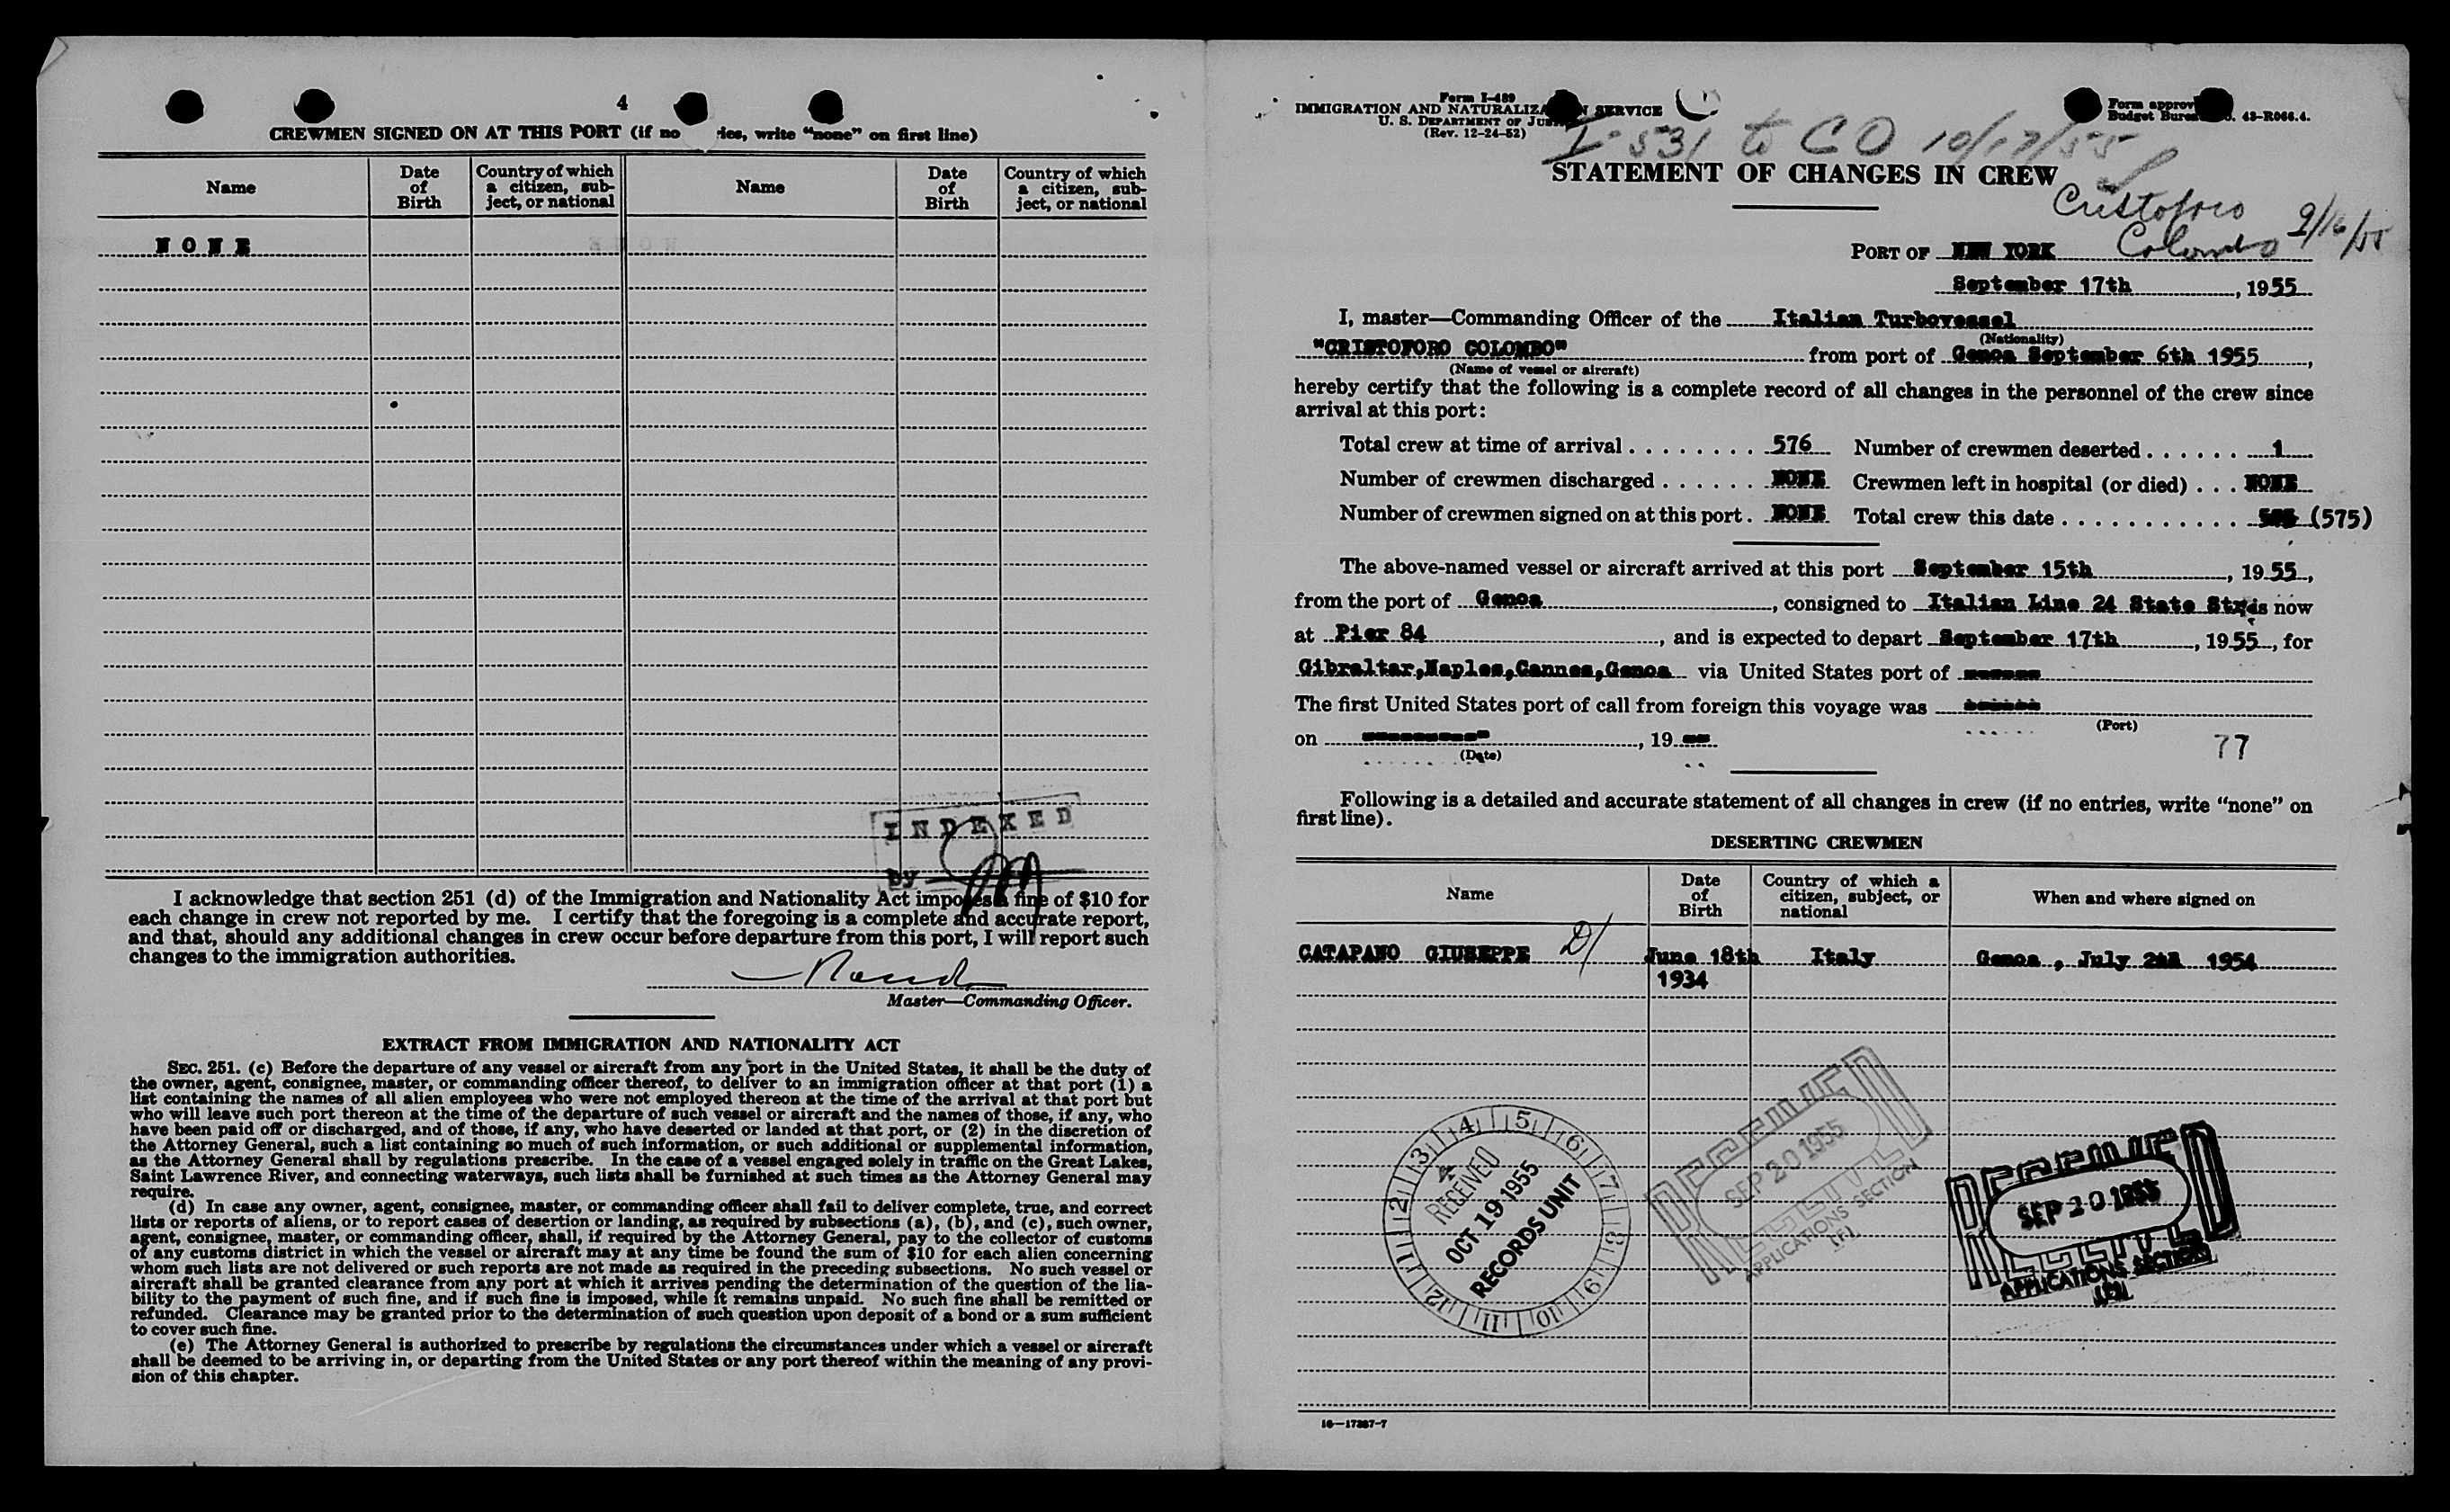 4
CREWMEN SIGNED ON AT THIS PORT (if no ries, write “none” on first line)
Name
Date of Birth
Country of which a citizen, sub-ject, or national
Name
Date of Birth
Country of which a citizen, sub-ject, or national
NONE
INDEXED
by
I acknowledge that section 251 (d) of the Immigration and Nationality Act imposes a fine of $10 for
each change in crew not reported by me. I certify that the foregoing is a complete and accurate report,
and that, should any additional changes in crew occur before departure from this port, I will report such
changes to the immigration authorities.
Master—Commanding Officer.
EXTRACT FROM IMMIGRATION AND NATIONALITY ACT
SEC. 251. (c) Before the departure of any vessel or aircraft from any port in the United States, it shall be the duty of
the owner, agent, consignee, master, or commanding officer thereof, to deliver to an immigration officer at that port (1) a
list containing the names of all alien employees who were not employed thereon at the time of the arrival at that port but
who will leave such port thereon at the time of the departure of such vessel or aircraft and the names of those, if any, who
have been paid off or discharged, and of those, if any, who have deserted or landed at that port, or (2) in the discretion of
the Attorney General, such a list containing so much of such information, or such additional or supplemental information,
as the Attorney General shall by regulations prescribe. In the case of a vessel engaged solely in traffic on the Great Lakes,
Saint Lawrence River, and connecting waterways, such lists shall be furnished at such times as the Attorney General may
require.
(d) In case any owner, agent, consignee, master, or commanding officer shall fail to deliver complete, true, and correct
lists or reports of aliens, or to report cases of desertion or landing, as required by subsections (a), (b), and (c), such owner,
agent, consignee, master, or commanding officer, shall, if required by the Attorney General, pay to the collector of customs
of any customs district in which the vessel or aircraft may at any time be found the sum of $10 for each alien concerning
whom such lists are not delivered or such reports are not made as required in the preceding subsections. No such vessel or
aircraft shall be granted clearance from any port at which it arrives pending the determination of the question of the lia-
bility to the payment of such fine, and if such fine is imposed, while it remains unpaid. No such fine shall be remitted or
refunded. Clearance may be granted prior to the determination of such question upon deposit of a bond or a sum sufficient
to cover such fine.
(e) The Attorney General is authorized to prescribe by regulations the circumstances under which a vessel or aircraft
shall be deemed to be arriving in, or departing from the United States or any port thereof within the meaning of any provi-
sion of this chapter.
Form I-489
IMMIGRATION AND NATURALIZA N SERVICE
U. S. DEPARTMENT OF JUS
(Rev. 12-24-52)
Form approv
Budget Burea . 43-R066.4.
I-531 to CO 10/17/55
STATEMENT OF CHANGES IN CREW
Cristoforo
Colombo 9/16/55
PORT OF NEW YORK
September 17th, 1955
I, master—Commanding Officer of the Italian Turbovessel
(Nationality)
"CRISTOFORO COLOMBO" from port of Genoa September 6th 1955,
(Name of vessel or aircraft)
hereby certify that the following is a complete record of all changes in the personnel of the crew since
arrival at this port:
Total crew at time of arrival 576 Number of crewmen deserted 1
Number of crewmen discharged NONE Crewmen left in hospital (or died) NONE
Number of crewmen signed on at this port. NONE Total crew this date (575)
The above-named vessel or aircraft arrived at this port September 15th, 1955,
from the port of Genoa, consigned to Italian Line 24 State Str. is now
at Pier 84, and is expected to depart September 17th, 1955, for
Gibraltar,Naples,Cannes,Genoa via United States port of ------
The first United States port of call from foreign this voyage was ------
(Port)
on ----------, 19 --
(Date)
77
Following is a detailed and accurate statement of all changes in crew (if no entries, write “none” on
first line).
DESERTING CREWMEN
Name
Date of Birth
Country of which a citizen, subject, or national
When and where signed on
CATAPANO GIUSEPPE D/ June 18th Italy Genoa, July 1954
1934
RECEIVED
OCT 19 1955
RECORDS UNIT
1 2 3 4 5 6 7 8 9 10 11 12
RECEIVED
SEP 20 1955
APPLICATIONS SECTION
RECEIVED
SEP 20 1955
APPLICATIONS SECTION
16—17287-7